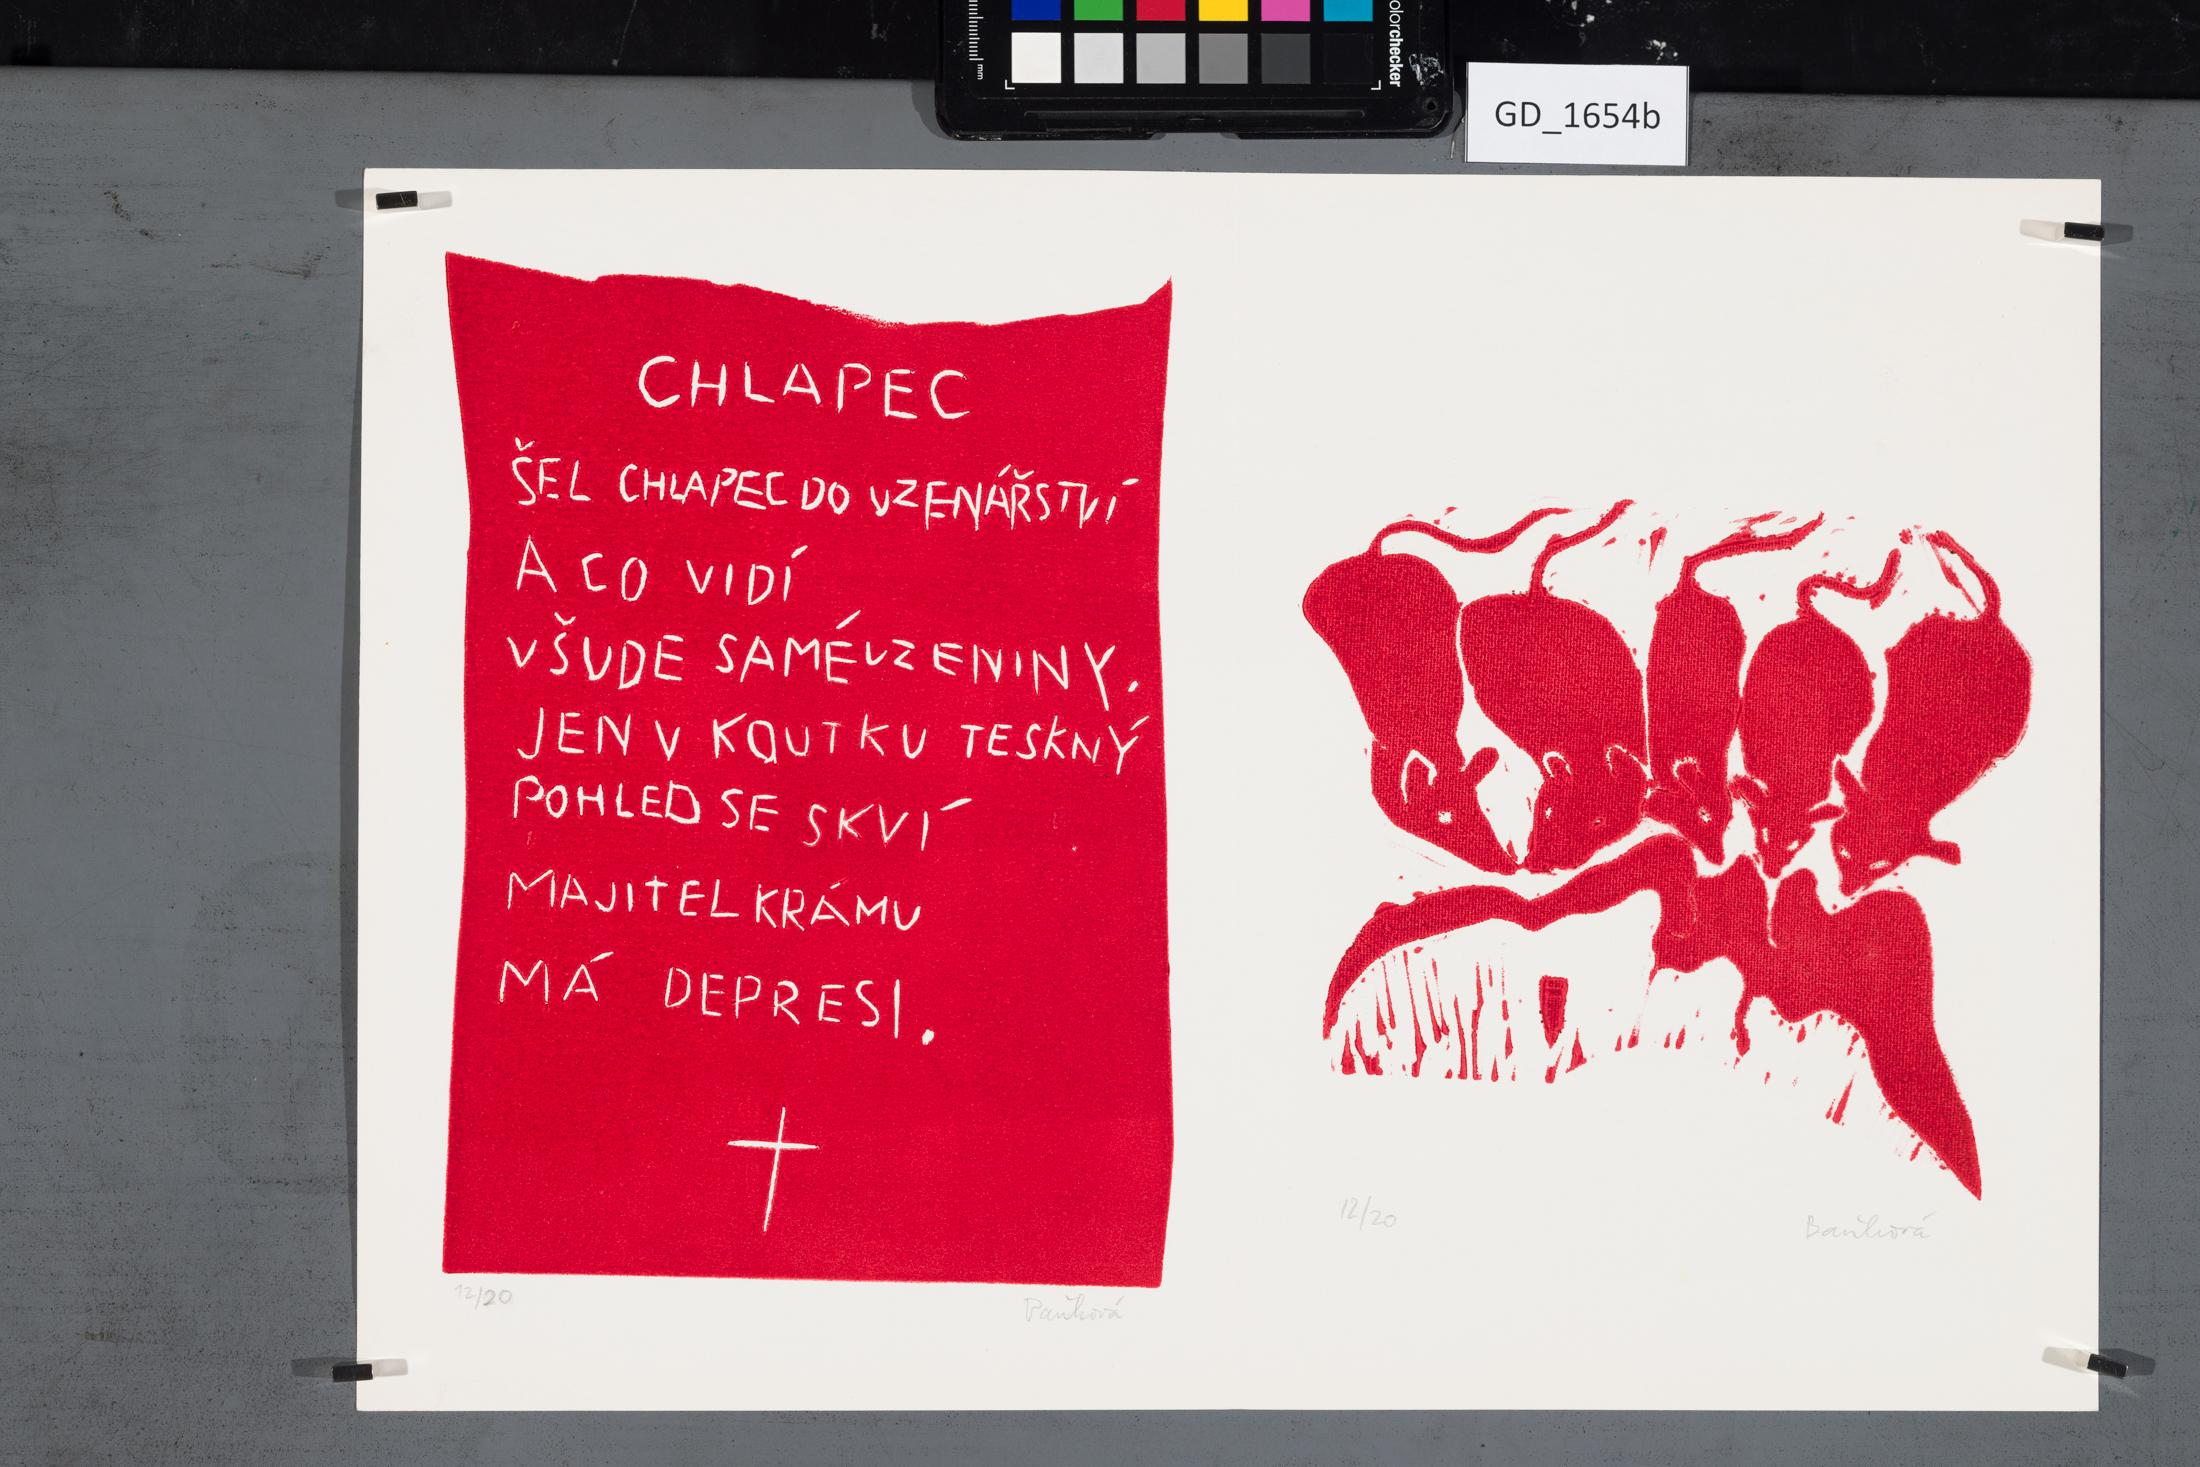 mm
olorchecker
GD_1654b
CHLAPEC
ŠEL CHLAPEC DO UZENÁŘSTVÍ
A CO VIDÍ
VŠUDE SAMÉ UZENINY.
JEN V KOUTKU TESKNÝ
POHLED SE SKVÍ
MAJITEL KRÁMU
MÁ DEPRESI.
12/20
12/20